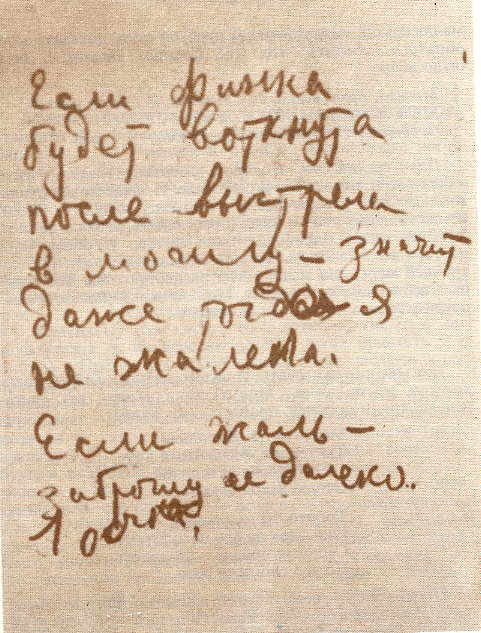 Если финка
будет воткнута
после выстрела
в могилу – значит
даже тогда я
не жалела.
Если жаль –
заброшу ее далеко..
1 осечка.